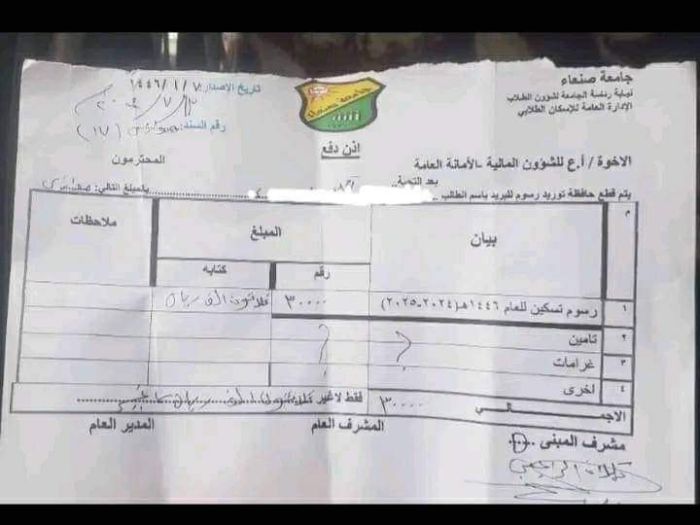 جامعة صنعاء
نيابة رئاسة الجامعة لشؤون الطلاب
الإدارة العامة للإسكان الطلابي
جامعة صنعاء
تاريخ الإصدار: ١٤٤٦/١/٧
رقم السند: (١٧)
اذن دفع
الاخوة / أ.ع للشؤون المالية -الأمانة العامة
المحترمون
بعد التحية..
يتم قطع حافظة توريد رسوم للبريد باسم الطالب
بالمبلغ التالي:
م
بيان
المبلغ
ملاحظات
رقم
كتابه
١ رسوم تسكين للعام ١٤٤٦هـ(٢٠٢٤-٢٠٢٥) ٣٠٠٠٠ ثلاثون الف ريال
٢ تامين
٣ غرامات
٤ اخرى
الاجمـــــــالـــــــي ٣٠٠٠٠ فقط لا غير ثلاثون الف ريال
مشرف المبنى
المشرف العام
المدير العام